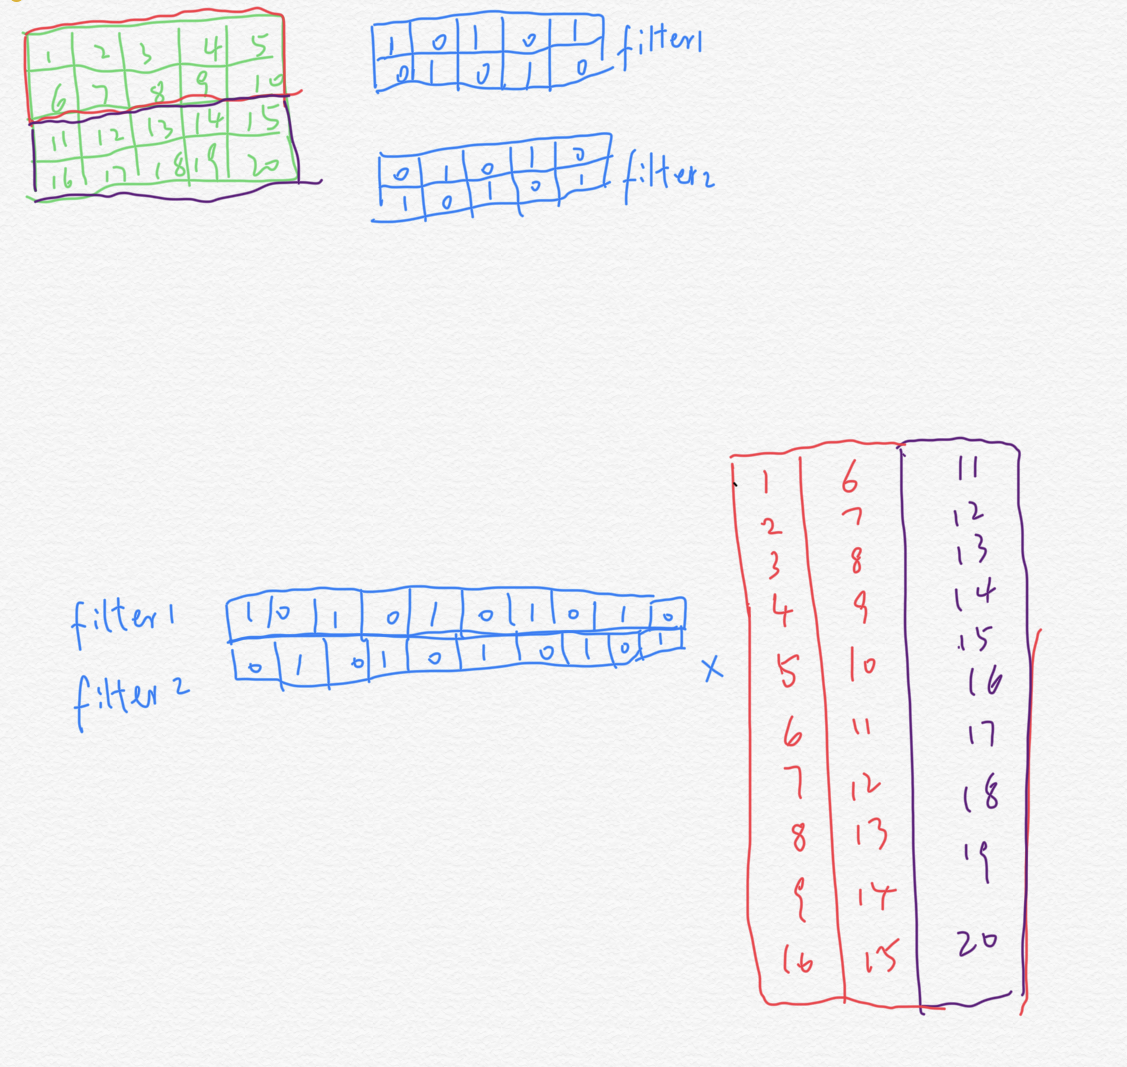 1 2 3 4 5
6 7 8 9 10
11 12 13 14 15
16 17 18 19 20
1 0 1 0 1
0 1 0 1 0
filter1
0 1 0 1 0
1 0 1 0 1
filter2
filter1
1 0 1 0 1 0 1 0 1 0
filter2
0 1 0 1 0 1 0 1 0 1
x
1 6 11
2 7 12
3 8 13
4 9 14
5 10 15
6 11 16
7 12 17
8 13 18
9 14 19
10 15 20